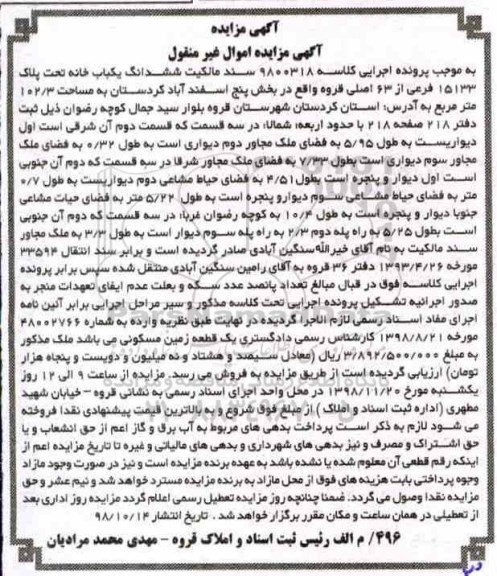 آگهی مزایده
آگهی مزایده اموال غیر منقول
به موجب پرونده اجرایی کلاسه ۹۸۰۰۳۱۸ سند مالکیت ششدانگ یکباب خانه تحت پلاک
۱۵۱۳۳ فرعی از ۶۳ اصلی قروه واقع در بخش پنج اسفند آباد کردستان به مساحت ۱۰۲/۳
متر مربع به آدرس: استان کردستان شهرستان قروه بلوار سید جمال کوچه رضوان ذیل ثبت
دفتر ۲۱۸ صفحه ۲۱۸ با حدود اربعه: شمالا: در سه قسمت که قسمت دوم آن شرقی است اول
دیواریست به طول ۵/۹۵ به فضای ملک مجاور دوم دیواری است به طول ۰/۳۲ به فضای ملک
مجاور سوم دیواری است بطول ۷/۳۳ به فضای ملک مجاور شرقا در سه قسمت که دوم آن جنوبی
است اول دیوار و پنجره است بطول ۴/۵۱ به فضای حیاط مشاعی دوم دیواریست به طول ۰/۷
متر به فضای حیاط مشاعی سوم دیوارو پنجره است به طول ۵/۲۲ متر به فضای حیات مشاعی
جنوبا دیوار و پنجره است به طول ۱۰/۴ به کوچه رضوان غربا: در سه قسمت که دوم آن جنوبی
است بطول ۵/۲۵ به راه پله دوم ۲/۳ به راه پله سوم دیوار است به طول ۳/۳ به ملک مجاور
سند مالکیت به نام آقای خیرالله سنگین آبادی صادر گردیده است و برابر سند انتقال ۳۳۵۹۴
مورخه ۱۳۹۳/۴/۲۶ دفتر ۳۶ قروه به آقای رامین سنگین آبادی منتقل شده سپس برابر پرونده
اجرایی کلاسه فوق در قبال مبالغ تعداد پانصد عدد سکه و بعلت عدم ایفای تعهدات منجر به
صدور اجرائیه تشکیل پرونده اجرایی تحت کلاسه مذکور و سیر مراحل اجرایی برابر آئین نامه
اجرای مفاد اسناد رسمی لازم الاجرا گردیده در نهایت طبق نظریه وارده به شماره ۴۸۰۰۲۷۶۶
مورخه ۱۳۹۸/۸/۲۱ کارشناس رسمی دادگستری یک قطعه زمین مسکونی می باشد ملک مذکور
به مبلغ ۳/۸۹۲/۵۰۰/۰۰۰ ریال (معادل سیصد و هشتاد و نه میلیون و دویست و پنجاه هزار
تومان) ارزیابی گردیده است از طریق مزایده به فروش می رسد. مزایده از ساعت ۹ الی ۱۲ روز
یکشنبه مورخ ۱۳۹۸/۱۱/۲۰ در محل واحد اجرای اسناد رسمی به نشانی قروه – خیابان شهید
مطهری (اداره ثبت اسناد و املاک) از مبلغ فوق شروع و به بالاترین قیمت پیشنهادی نقدا فروخته
می شود لازم به ذکر است پرداخت بدهی های مربوط به آب برق و گاز اعم از حق انشعاب و یا
حق اشتراک و مصرف و نیز بدهی های شهرداری و بدهی های مالیاتی و غیره تا تاریخ مزایده اعم از
اینکه رقم قطعی آن معلوم شده یا نشده باشد به عهده برنده مزایده است و نیز در صورت وجود مازاد
وجوه پرداختی بابت هزینه های فوق از محل مازاد به برنده مزایده مسترد خواهد شد و نیم عشر و حق
مزایده نقدا وصول می گردد. ضمنا چنانچه روز مزایده تعطیل رسمی اعلام گردد مزایده روز اداری بعد
از تعطیلی در همان ساعت و مکان مقرر برگزار خواهد شد. تاریخ انتشار ۹۸/۱۰/۱۴
۴۹۶/ م الف رئیس ثبت اسناد و املاک قروه – مهدی محمد مرادیان